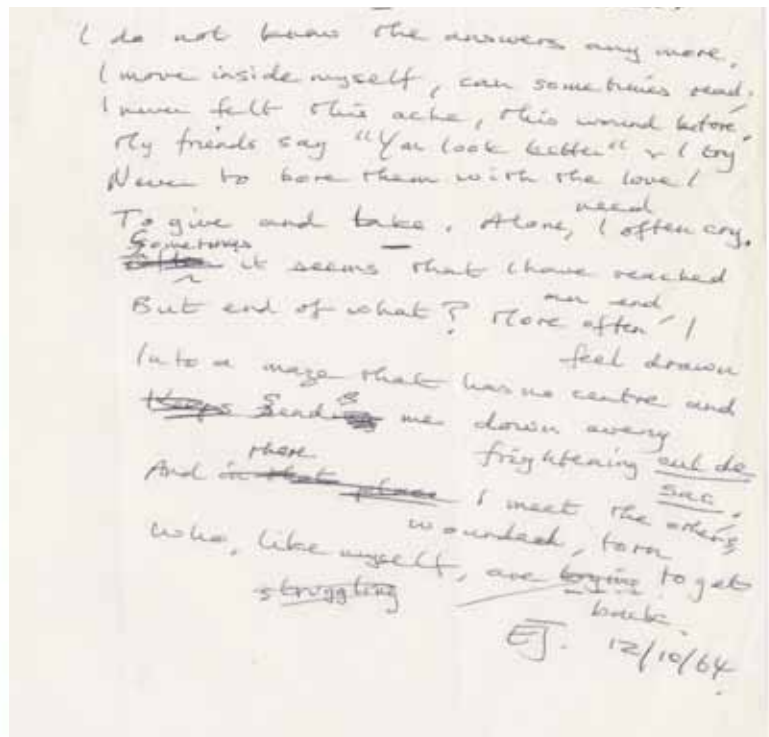 I do not know the answers any more.
I move inside myself, can sometimes read.
I never felt this ache, this wound before.
My friends say "You look better" & I try
Never to bore them with the love I
need
To give and take. Alone, I often cry.
Sometimes
Often it seems that I have reached
an end
But end of what? More often I
feel drawn
Into a maze that has no centre and
Keeps Sends me down every
frightening cul de
sac.
there
And in that place I meet the others,
wounded, torn
Who, like myself, are trying to get
struggling
back.
EJ. 12/10/64.